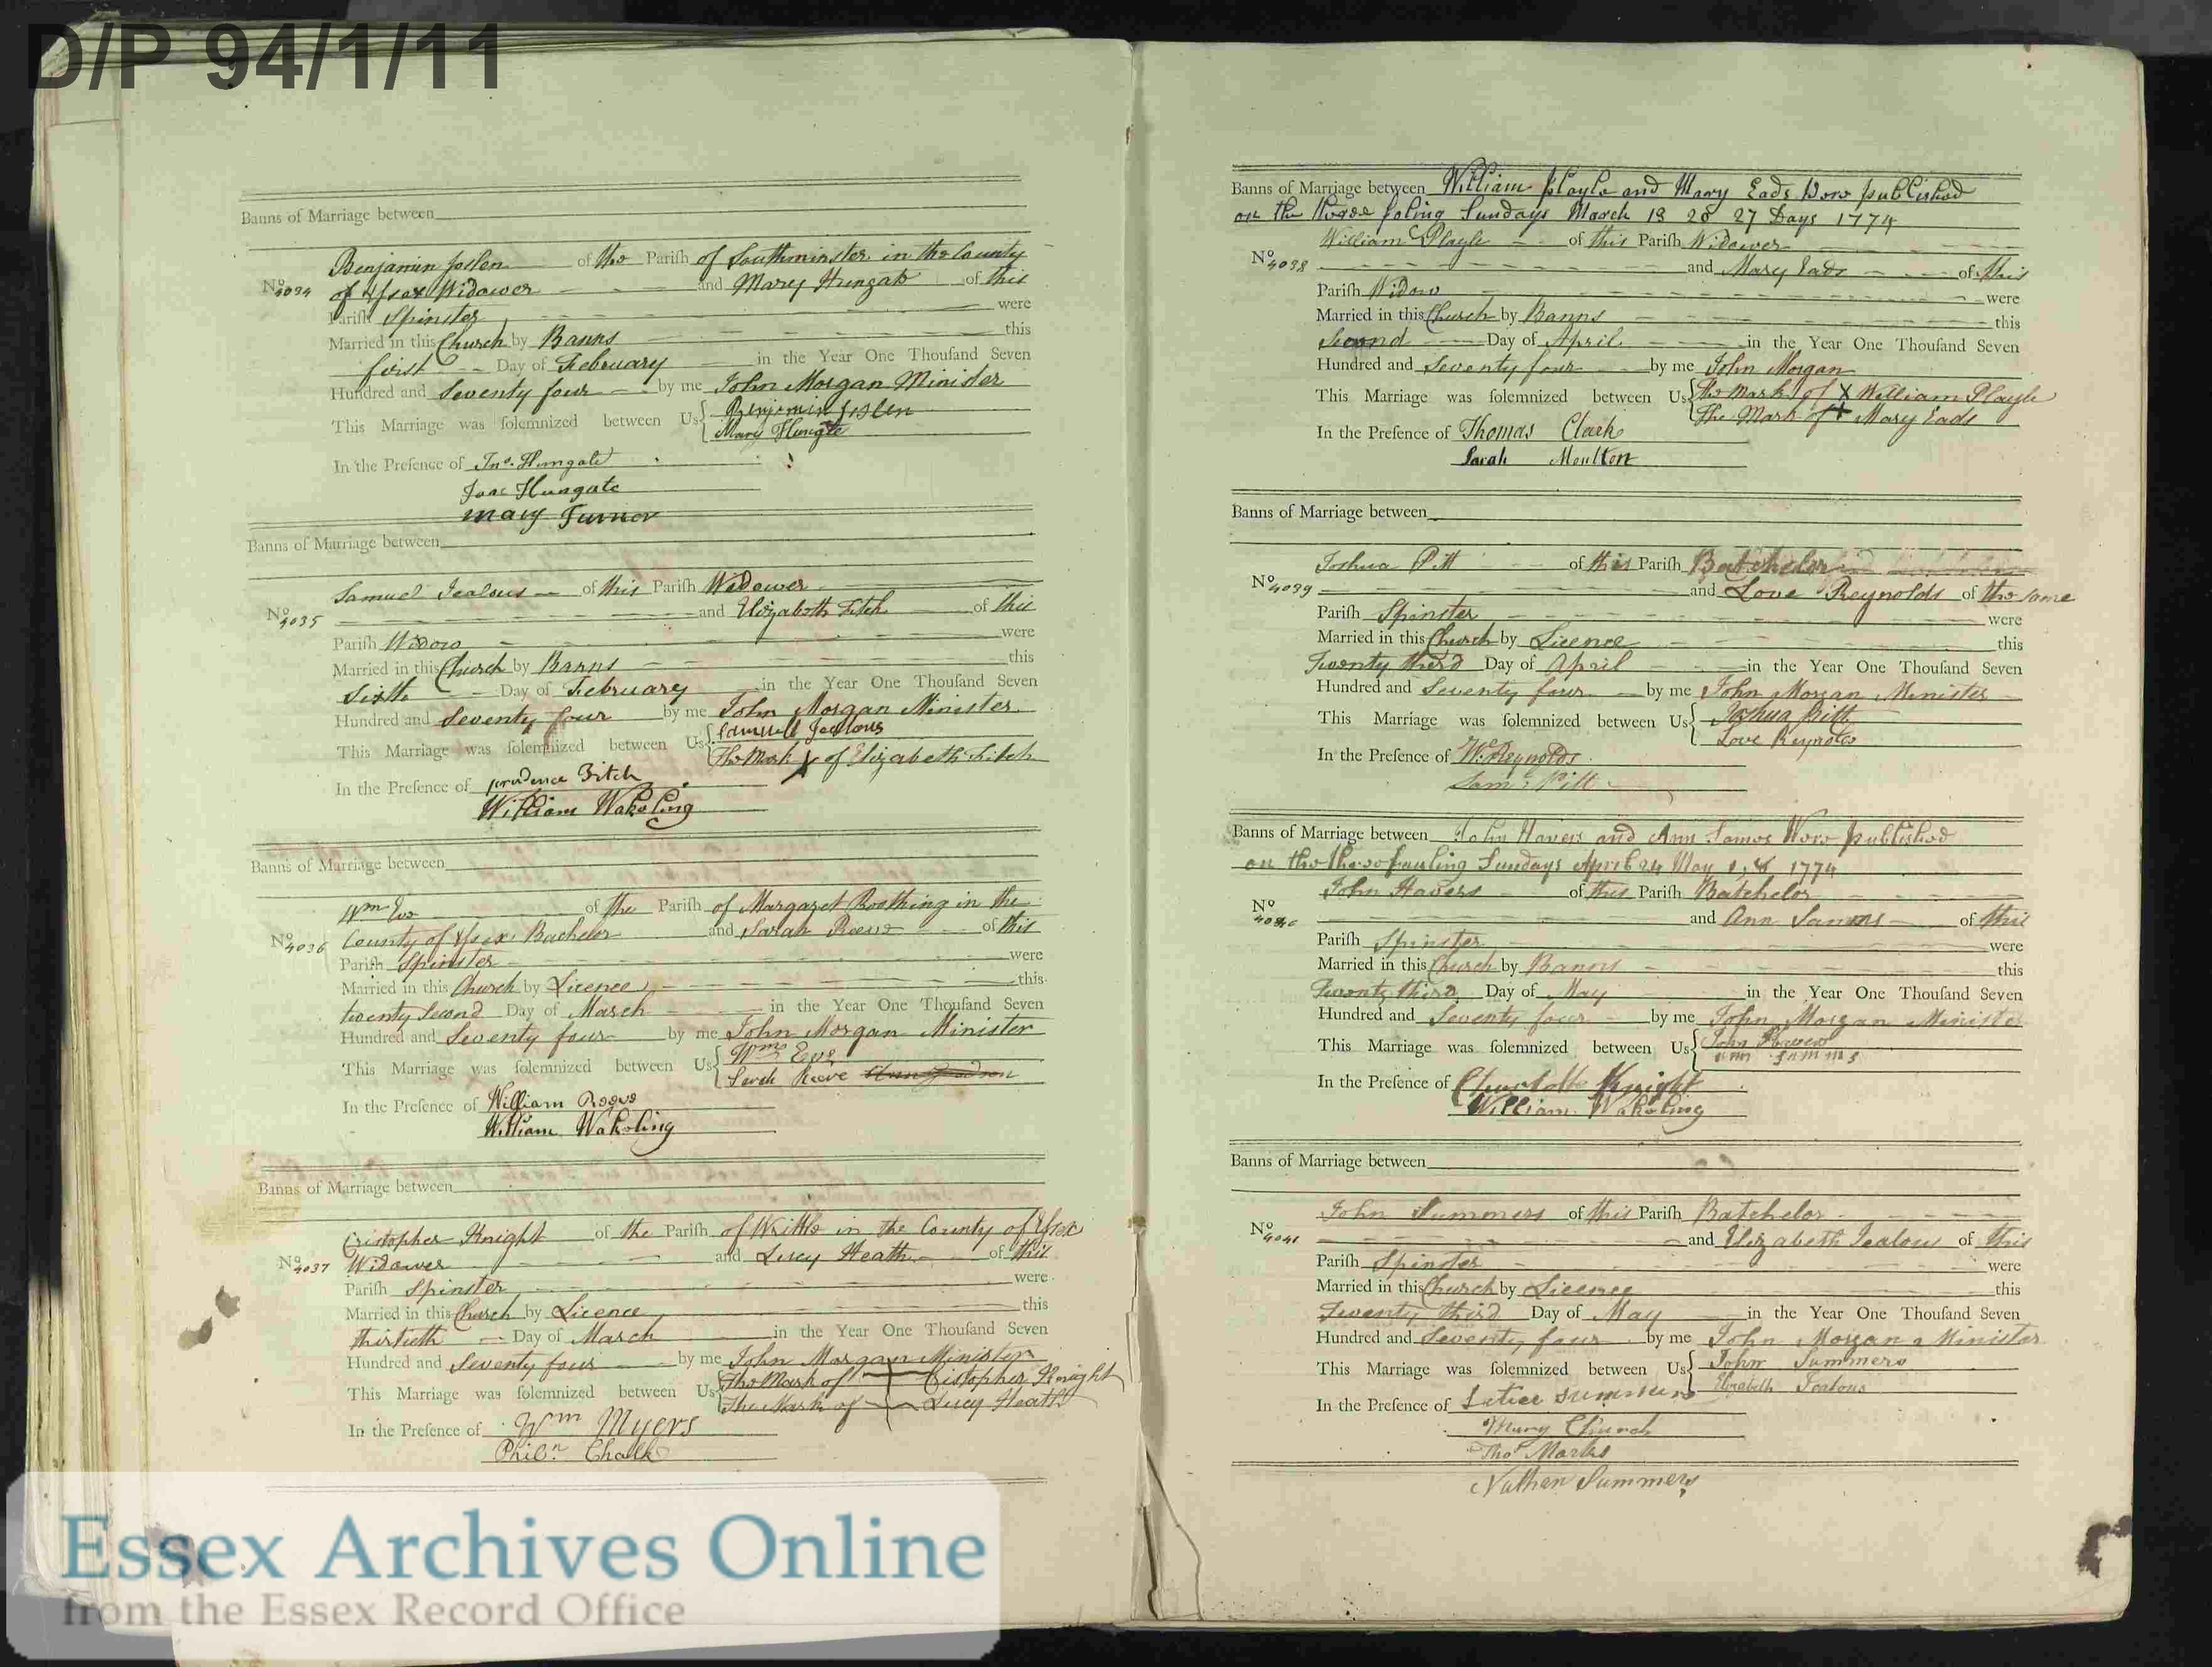 D/P 94/1/11
Banns of Marriage between
Benjamin Joslen of the Pariſh of Southminster in the County
No 4034 of Eſsex Widower and Mary Hungate of this
Pariſh Spinster were
Married in this Church by Banns this
first Day of February in the Year One Thouſand Seven
Hundred and Seventy four by me John Morgan Minister
This Marriage was ſolemnized between Us Benjamin Joslen
Mary Hungte
In the Preſence of Jno. Hungate
Isaac Hungate
mary Turner
Banns of Marriage between
Samuel Jealous of this Pariſh Widower
No 4035 and Elizabeth Fitch of this
Pariſh Widow were
Married in this Church by Banns this
Sixth Day of February in the Year One Thouſand Seven
Hundred and Seventy four by me John Morgan Minister
This Marriage was ſolemnized between Us Samuell Jealous
The Mark X of Elizabeth Fitch
In the Preſence of prudence Fitch
William Wakeling
Banns of Marriage between
Wm Eve of the Pariſh of Margaret Roothing in the
No 4036 County of Eſsex Bachelor and Sarah Reeve of this
Pariſh Spinster were
Married in this Church by Licence this
twenty Second Day of March in the Year One Thouſand Seven
Hundred and Seventy four by me John Morgan Minister
This Marriage was ſolemnized between Us Wm Eve
Sarah Reeve
In the Preſence of William Reeve
William Wakeling
Banns of Marriage between
Cristopher Knight of the Pariſh of Writtle in the County of Eſsex
No 4037 Widower and Lucy Heath of this
Pariſh Spinster were
Married in this Church by Licence this
thirtieth Day of March in the Year One Thouſand Seven
Hundred and Seventy four by me John Morgan Minister
This Marriage was ſolemnized between Us The Mark of Cristopher Knight
The Mark of Lucy Heath
In the Preſence of Wm Myers
Philn. Chalk
Banns of Marriage between William playle and Mary Eads Were published
on the threee foling Sundays March 13 20 27 Days 1774
William Playle of this Pariſh Widower
No 4038 and Mary Eads of this
Pariſh Widow were
Married in this Church by Banns this
Second Day of April in the Year One Thouſand Seven
Hundred and Seventy four by me John Morgan
This Marriage was ſolemnized between Us The Mark of X William Playle
The Mark of + Mary Eads
In the Preſence of Thomas Clark
Sarah Moulton
Banns of Marriage between
Joshua Pitt of this Pariſh Batchelor
No 4039 and Love Reynolds of the same
Pariſh Spinster were
Married in this Church by Licence this
Twenty third Day of April in the Year One Thouſand Seven
Hundred and Seventy four by me John Morgan Minister
This Marriage was ſolemnized between Us Joshua Pitt
Love Reynolds
In the Preſence of Wm Reynolds
Saml Pitt
Banns of Marriage between John Havers and Ann Sames Were published
on the three fowling Sundays April 24 May 1, 8 1774
John Havers of this Pariſh Batchelor
No 4040 and Ann Samms of this
Pariſh Spinster were
Married in this Church by Banns this
Twenty third Day of May in the Year One Thouſand Seven
Hundred and Seventy four by me John Morgan Minister
This Marriage was ſolemnized between Us John Havers
ann samms
In the Preſence of Charlotte Knight
William Wakeling
Banns of Marriage between
John Summers of this Pariſh Batchelor
No 4041 and Elizabeth Jealous of this
Pariſh Spinster were
Married in this Church by Licence this
Twenty third Day of May in the Year One Thouſand Seven
Hundred and Seventy four by me John Morgan Minister
This Marriage was ſolemnized between Us John Summers
Elizabeth Jealous
In the Preſence of Letice Summers
Mary Church
Thos Marks
Nathan Summers
Essex Archives Online
from the Essex Record Office